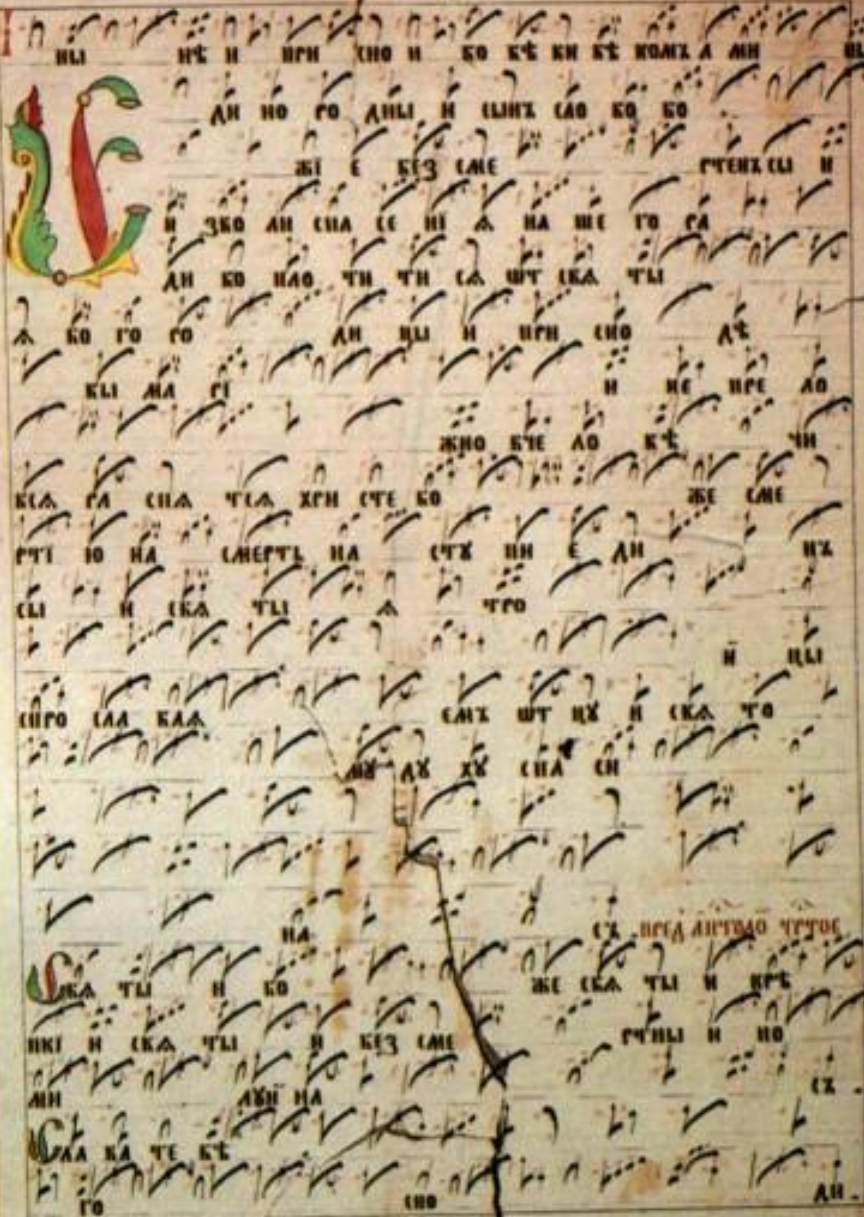 НЫ НѢ И ПРИ СНО И ВО ВѢ КИ ВѢ КОМЪ А МИ НЬ
ДИ НО РО ДНЫ И СЫНЪ СЛО ВО БО
ЖІ Е БЕЗ СМЕ РТЕНЪ СЫ И
И ЗВО ЛИ СПА СЕ НІ Ѧ НА ШЕ ГО РА
ДИ ВО ПЛО ТИ ТИ СѦ ѾТ СВѦ ТЫ
Ѧ БО ГО РО ДИ ЦЫ И ПРИ СНО ДѢ
ВЫ МА РІ И НЕ ПРЕ ЛО
ЖНО ВЧЕ ЛО ВѢ ЧИ
ВСѦ РА СПѦ ТСѦ ХРИ СТЕ БО ЖЕ СМЕ
РТІ Ю НА СМЕРТЬ НА СТꙊ ПИ Е ДИ НЪ
СЫ И СВѦ ТЫ Ѧ ТРО
И ЦЫ
СПРО СЛА ВАѦ ЕМЪ ѾТ ЦꙊ И СВѦ ТО
МꙊ ДꙊ ХꙊ СПА СИ
НА СЪ
СВѦ ТЫ И БО ЖЕ СВѦ ТЫ И КРѢ
ПКІ И СВѦ ТЫ И БЕЗ СМЕ РТНЫ И ПО
МИ ЛꙊИ НА СЪ
СЛА ВА ТЕ БѢ
ГО СПО ДИ